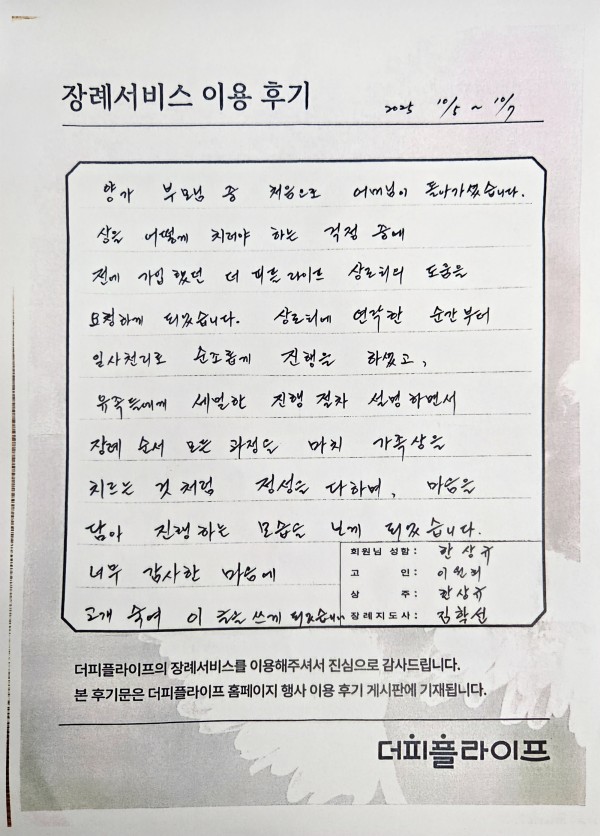 장례서비스 이용 후기
2025 10/5 ~ 10/7
양가 부모님 중 처음으로 어머님이 돌아가셨습니다.
상을 어떻게 치러야 하는 걱정 중에
전에 가입 했던 더 피플 라이프 상조회의 도움을
요청하게 되었습니다. 상조회에 연락한 순간부터
일사천리로 순조롭게 진행을 하셨고,
유족들에게 세밀한 진행 절차 설명하면서
장례 순서 모든 과정을 마치 가족상을
치르는 것 처럼 정성을 다하며, 마음을
담아 진행하는 모습을 보게 되었습니다.
너무 감사한 마음에
고개 숙여 이 글을 쓰게 되었습니다
회원님 성함 : 한상규
고 인 : 이원희
상 주 : 한상규
장례지도사 : 김학선
더피플라이프의 장례서비스를 이용해주셔서 진심으로 감사드립니다.
본 후기문은 더피플라이프 홈페이지 행사 이용 후기 게시판에 기재됩니다.
더피플라이프